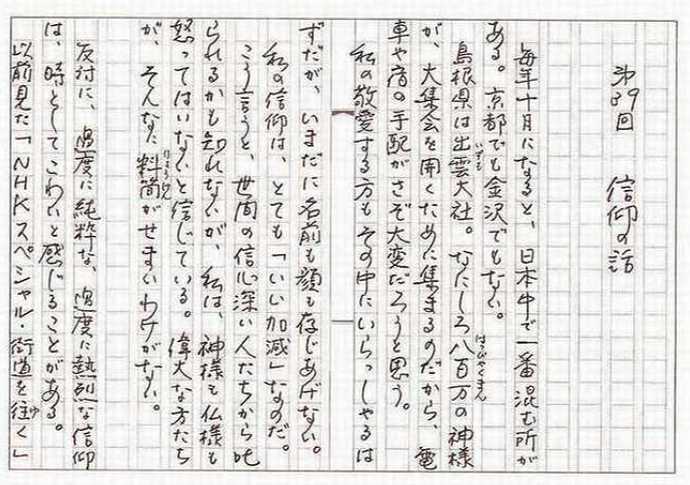 第39回　信仰の話
毎年十月になると、日本中で一番混む所が
ある。京都でも金沢でもない。
島根県は出雲大社。なにしろ八百万の神様
いずも
はっぴゃくまん
が、大集会を開くために集まるのだから、電
車や宿の手配がさぞ大変だろうと思う。
私の敬愛する方もその中にいらっしゃるは
ずだが、いまだに名前も顔も存じあげない。
私の信仰は、とても「いい加減」なのだ。
こう言うと、世間の信心深い人たちから叱
られるかも知れないが、私は、神様も仏様も
怒ってはいないと信じている。偉大な方たち
が、そんなに料簡がせまいわけがない。
りょうけん
反対に、過度に純粋な、過度に熱烈な信仰
は、時としてこわいと感じることがある。
以前見た「NHKスペシャル・街道を往く」
ゆ